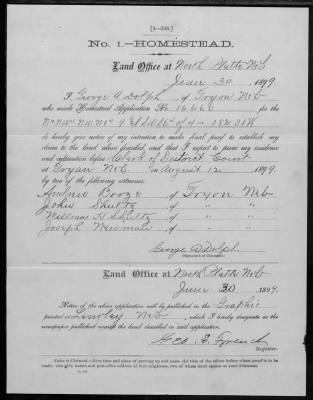 [4—348.]
No. 1.—HOMESTEAD.
Land Office at North Platte Neb
June 30, 1899.
I, George A Dolph, of Tryon Neb
who made Homestead Application No. 16666 for the
do hereby give notice of my intention to make final proof to establish my
claim to the land above described, and that I expect to prove my residence
and cultivation before Clerk of District Court
at Tryon Neb on August 12, 1899,
by two of the following witnesses:
Booze of Tryon Neb
John Shultz of " "
William H Shultz of " "
Joseph Newman of " "
George A Dolph
(Signature of Claimant.)
Land Office at North Platte Neb
June 30, 1899.
Notice of the above application will be published in the Graphic
printed at Neb, which I hereby designate as the
newspaper published nearest the land described in said application.
Geo. E. French
Register.
Notice to Claimant.—Give time and place of proving up and name the title of the officer before whom proof is to be
made; also give names and post-office address of four neighbors, two of whom must appear as your witnesses.